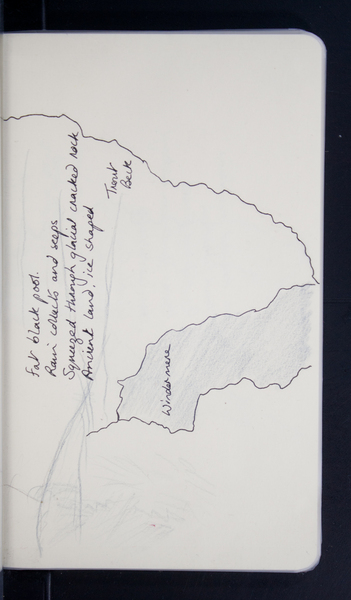 Fat black pool.
Rain collects and seeps
Squeezed through glacial cracked rock
Ancient land, ice shaped
Trout
Beck
Windermere